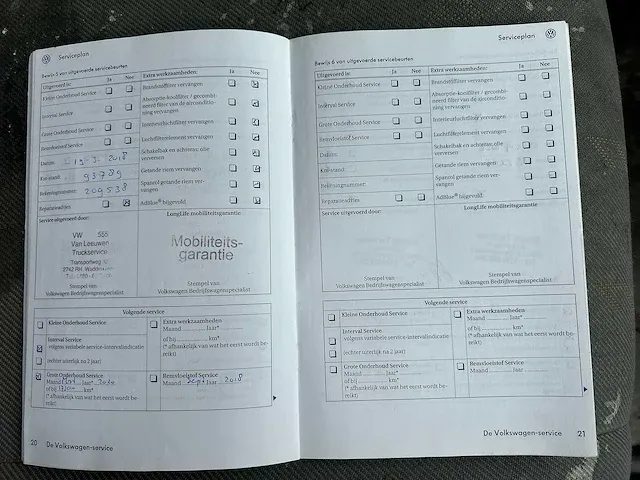 Serviceplan
Bewijs 5 van uitgevoerde servicebeurten
Uitgevoerd is: Ja Nee
Kleine Onderhoud Service
Interval Service
Grote Onderhoud Service
Remvloeistof Service
Datum: 19-3-2018
Km-stand: 93789
Rekeningnummer: 209538
Reparatieadvies
Extra werkzaamheden: Ja Nee
Brandstoffilter vervangen
Absorptie-koolfilter / gecombi-
neerd filter van de airconditio-
ning vervangen
Interieurluchtfilter vervangen
Luchtfilterelement vervangen
Schakelbak en achteras: olie
verversen
Getande riem vervangen
Spanrol getande riem ver-
vangen
AdBlue® bijgevuld
Service uitgevoerd door:
VW 555
Van Leeuwen
Truckservice
Transportweg
2742 RH Waddinxveen
Stempel van
Volkswagen Bedrijfswagenspecialist
LongLife mobiliteitsgarantie
Mobiliteits-
garantie
Stempel van
Volkswagen Bedrijfswagenspecialist
Volgende service
Kleine Onderhoud Service
Interval Service
volgens variabele service-intervalindicatie
(echter uiterlijk na 2 jaar)
Grote Onderhoud Service
Maand jaar*
of bij km*
(* afhankelijk van wat het eerst wordt be-
reikt)
Extra werkzaamheden
Maand jaar*
of bij km*
(* afhankelijk van wat het eerst wordt be-
reikt)
Remvloeistof Service
Maand sept jaar 2018
20 De Volkswagen-service
Serviceplan
Bewijs 6 van uitgevoerde servicebeurten
Uitgevoerd is: Ja Nee
Kleine Onderhoud Service
Interval Service
Grote Onderhoud Service
Remvloeistof Service
Datum:
Km-stand:
Rekeningnummer:
Reparatieadvies
Extra werkzaamheden: Ja Nee
Brandstoffilter vervangen
Absorptie-koolfilter / gecombi-
neerd filter van de airconditio-
ning vervangen
Interieurluchtfilter vervangen
Luchtfilterelement vervangen
Schakelbak en achteras: olie
verversen
Getande riem vervangen
Spanrol getande riem ver-
vangen
AdBlue® bijgevuld
Service uitgevoerd door:
Stempel van
Volkswagen Bedrijfswagenspecialist
LongLife mobiliteitsgarantie
Stempel van
Volkswagen Bedrijfswagenspecialist
Volgende service
Kleine Onderhoud Service
Interval Service
volgens variabele service-intervalindicatie
(echter uiterlijk na 2 jaar)
Grote Onderhoud Service
Maand jaar*
of bij km*
(* afhankelijk van wat het eerst wordt be-
reikt)
Extra werkzaamheden
Maand jaar*
of bij km*
(* afhankelijk van wat het eerst wordt be-
reikt)
Remvloeistof Service
Maand jaar
De Volkswagen-service 21